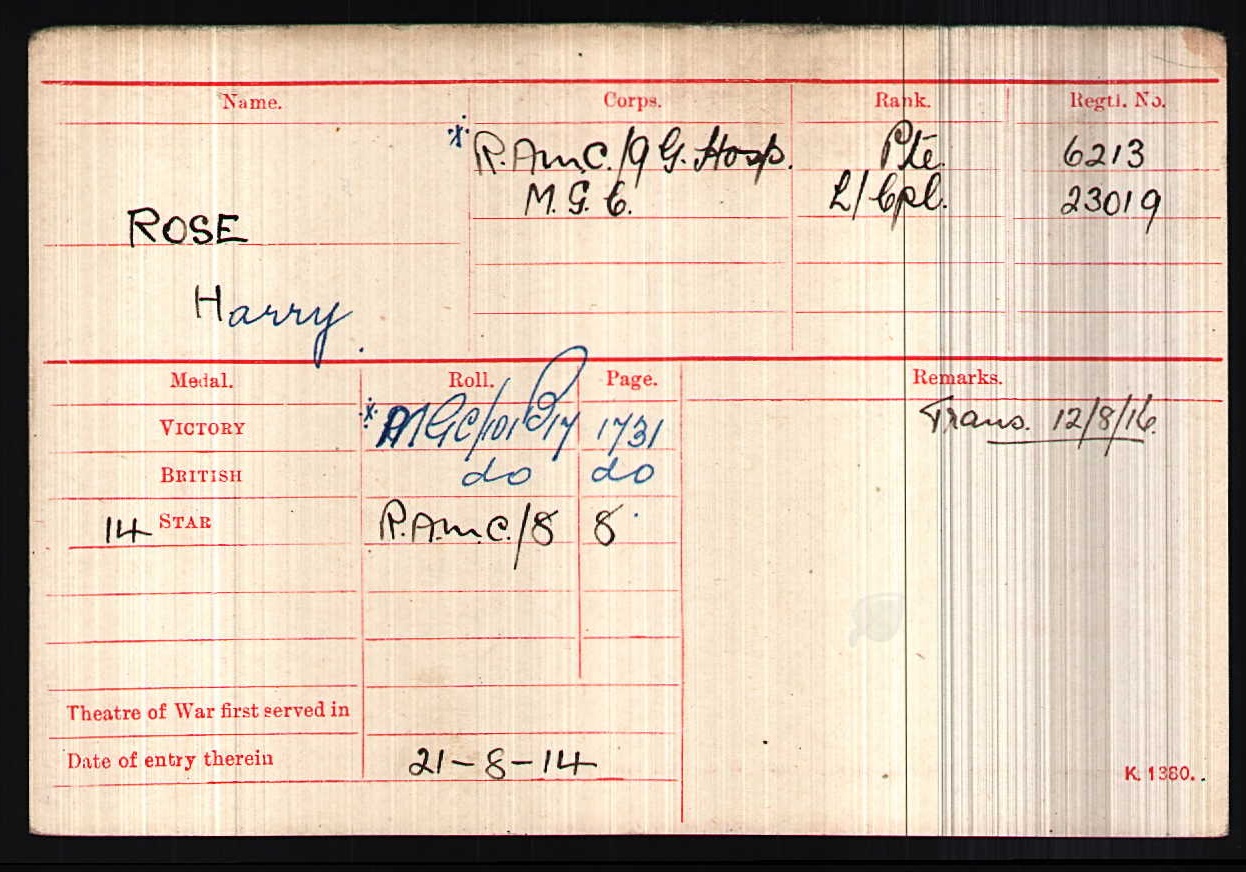 Name. Corps. Rank. Regtl. No.
* R.A.M.C./9 G. Hosp. Pte. 6213
M.G.C. L/Cpl. 23019
ROSE
Harry
Medal. Roll. Page. Remarks.
VICTORY * MGC/101B17 1731 Trans. 12/8/16.
BRITISH do do
14 STAR R.A.M.C./8 8
Theatre of War first served in
Date of entry therein 21-8-14
K. 1380.